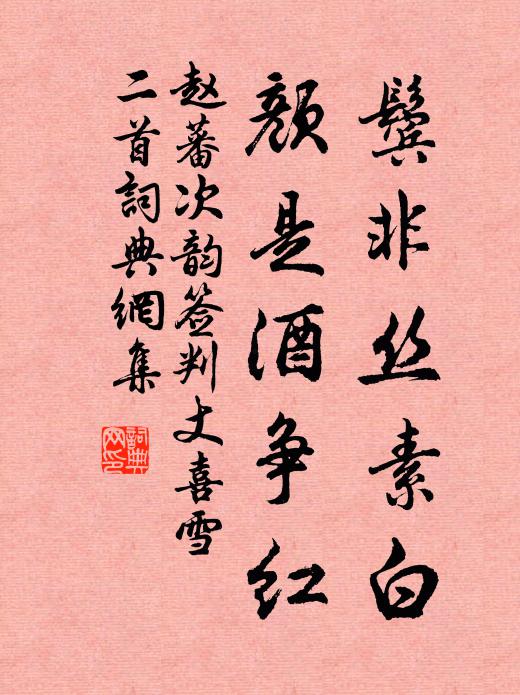 鬓非丝素白
颜是酒争红
赵蕃次韵签判丈喜雪
二首词典網集
詞典
网印